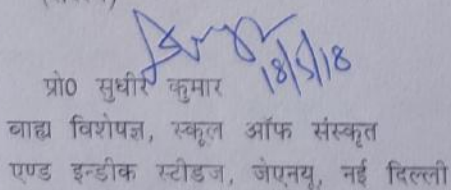 18/5/18
प्रो0 सुधीर कुमार
बाह्य विशेषज्ञ, स्कूल ऑफ संस्कृत
एण्ड इन्डीक स्टीडज, जेएनयू, नई दिल्ली